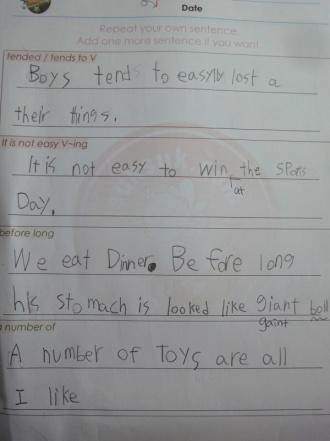 Date
Repeat your own sentence.
Add one more sentence if you want.
tended / tends to V
Boys tends to easyly lost a
their things.
It is not easy V~ing
It is not easy to win the sports
at
Day.
before long
We eat Dinner. Before long
his stomach is looked like giant ball
gaint
number of
A number of Toys are all
I like